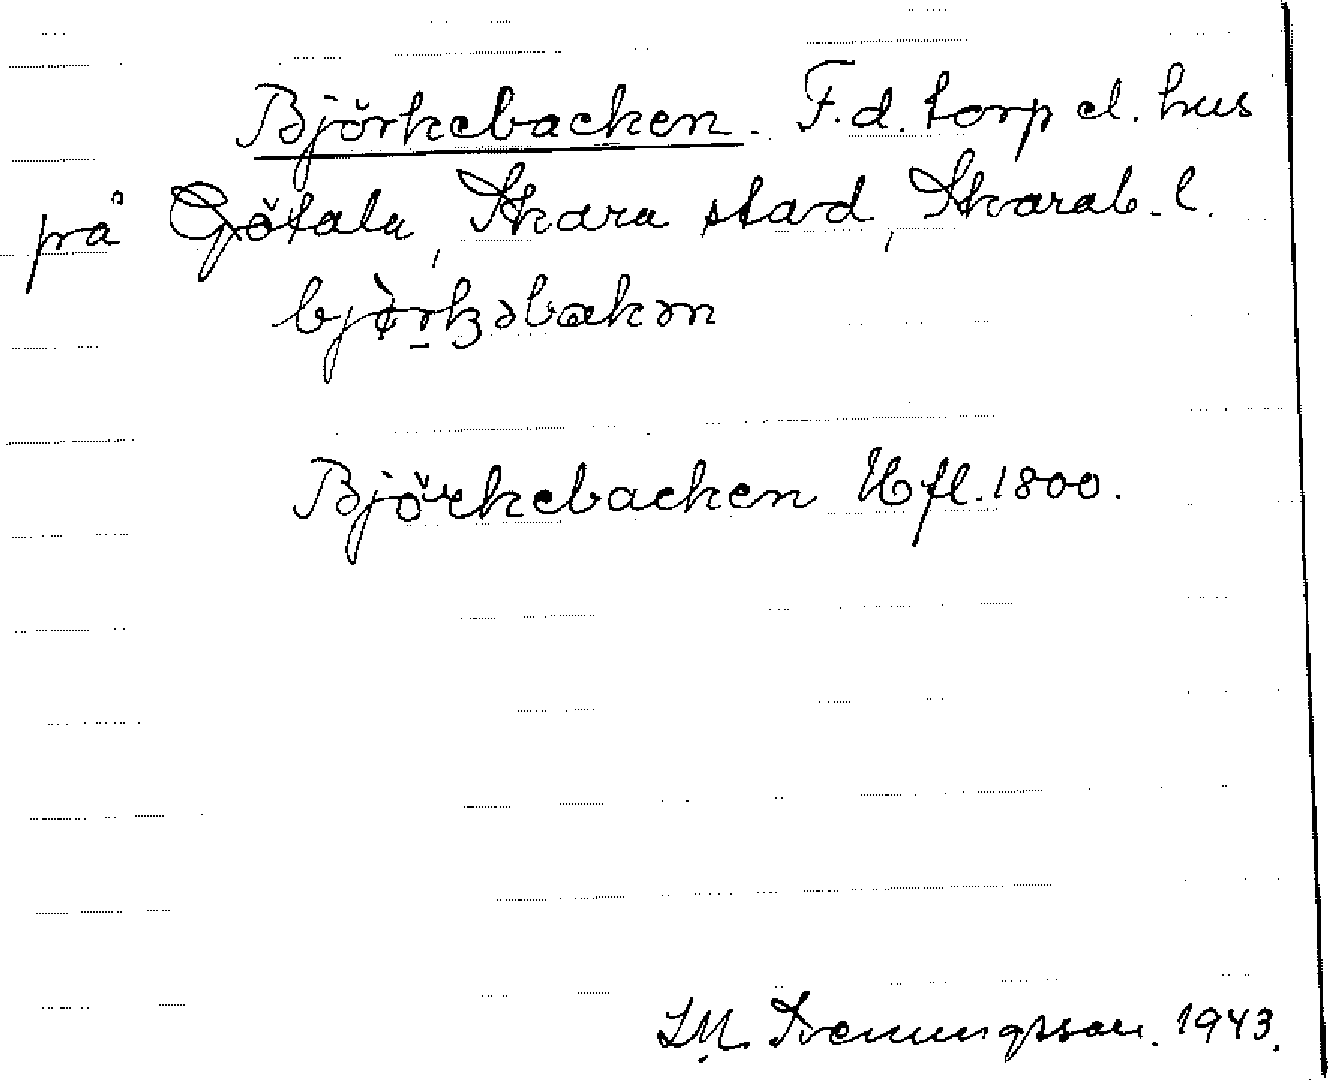 Björkebacken. F.d. torp el. hus
på Götala, Skara stad, Skarab. l.
bjørkəbakən
Björkebacken Hfl. 1800.
1943.